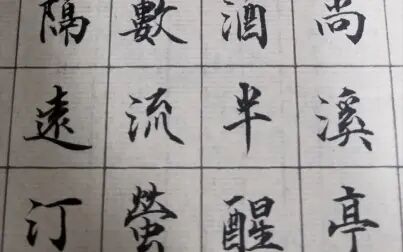 尚溪亭
酒半醒
數流螢
隔遠汀